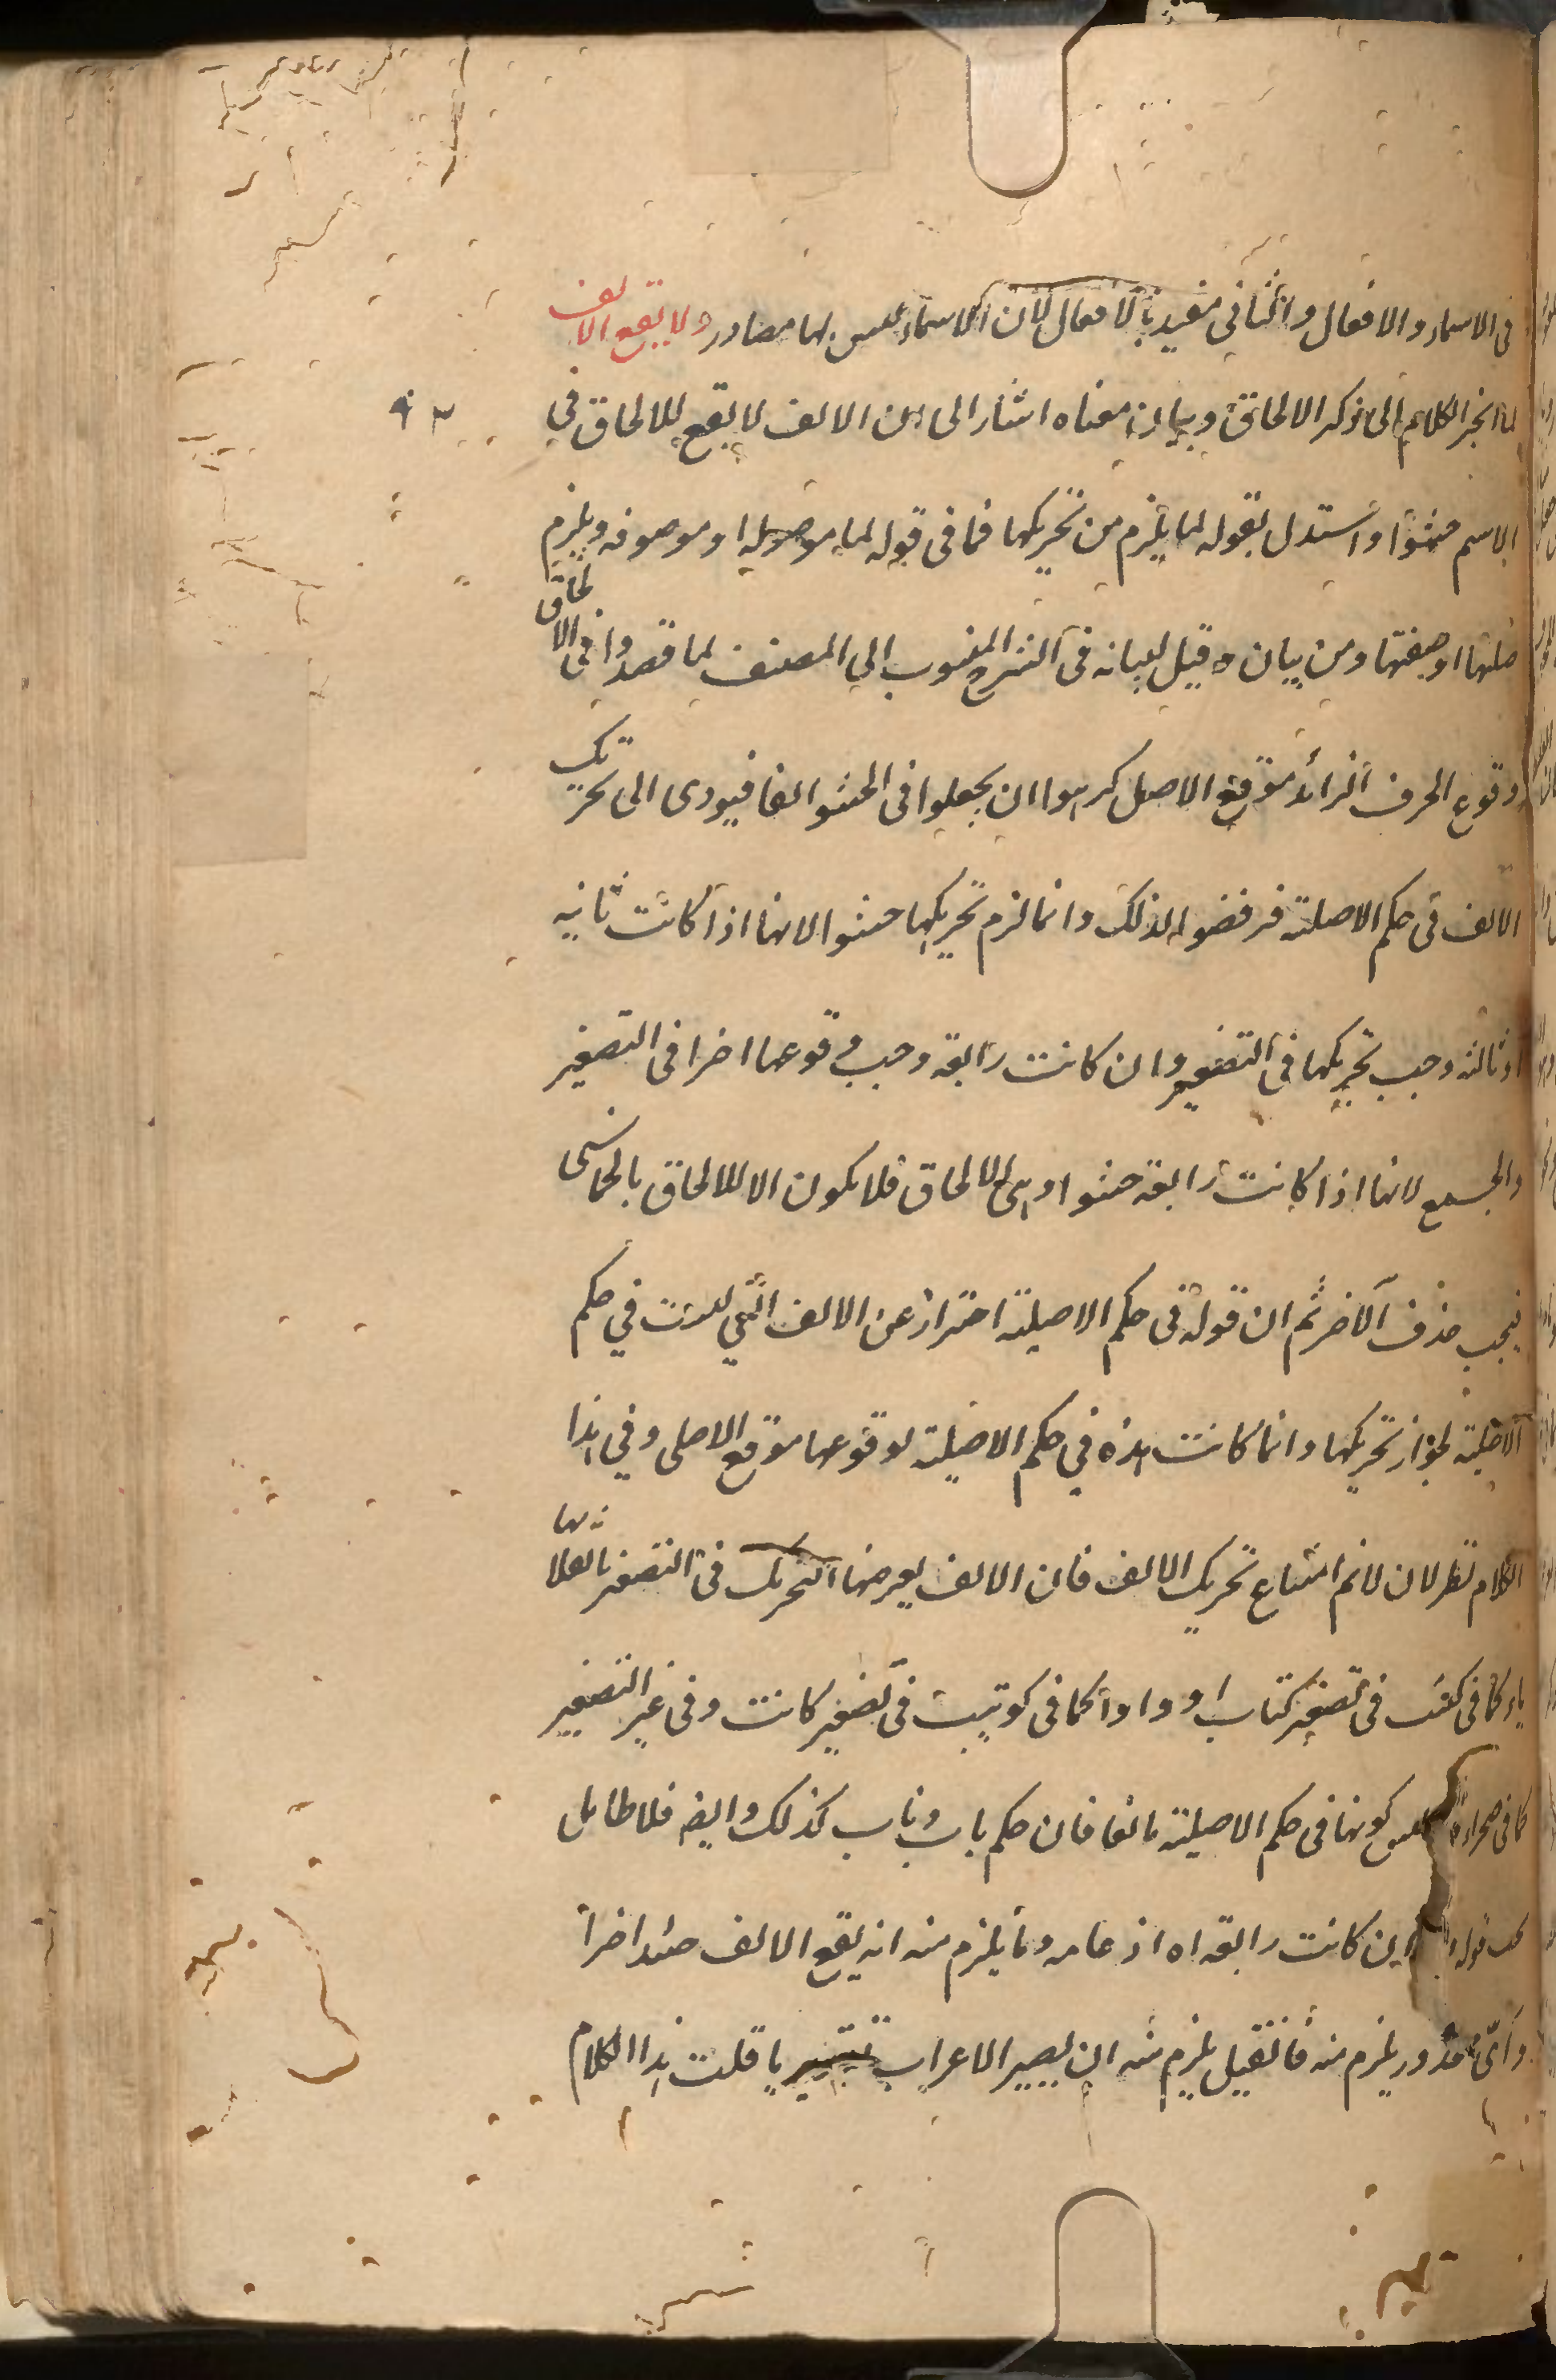 فى الاسماء والافعال والثانى مقيد بالافعال لان الاسماء ليس لها مصادر ولا يقع الالف
لما انجر الكلام الى ذكر الالحاق وبيان معناه اشار الى ان الالف لا يقع للالحاق في
الاسم حشوا واستدل بقوله لما يلزم من تحريكها فما فى قوله لما موصولة او موصوفه ويلزم
صلتها او صفتها ومن بيان ه قيل لبيانه فى الشرح المنسوب الى المصنف لما قصدوا فى الالحاق
وقوع الحرف الزائد موقع الاصل كرهوا ان يجعلوا فى الحشو الفا فيودى الى تحريك
الالف فى حكم الاصلية فرفضوا لذلك وانما لزم تحريكها حشوا لانها اذا كانت ثانيه
او ثالثه وجب تحريكها فى التصغير وان كانت رابعه وجب وقوعها اخرا فى التصغير
والجمع لانها اذا كانت رابعه حشوا وهى للالحاق فلا يكون الا للالحاق بالخماسى
فيجب حذف الآخر ثم ان قوله فى حكم الاصلية احتراز عن الالف التي ليست في حكم
الاصلية لجواز تحريكها وانما كانت هذه في حكم الاصلية لوقوعها موقع الاصلى وفي هذا
الكلام نظر لان لانم امتناع تحريك الالف فان الالف يعرضها التحريك فى التصغير بانقلابها
ياء كما فى كتيب فى تصغير كتاب او واوا كما فى كويتب فى تصغير كاتب وفى غير التصغير
كما فى صحراء وليس كونها فى حكم الاصلية مانعا فان حكم باب وناب كذلك وايضا فلا طايل
تحت قوله وان كانت رابعه اه اذ غايه ما يلزم منه انه يقع الالف حينئذ اخرا
واى محذور يلزم منه فان قيل يلزم منه ان يصير الاعراب تقديريا قلت هذا الكلام
٩٣